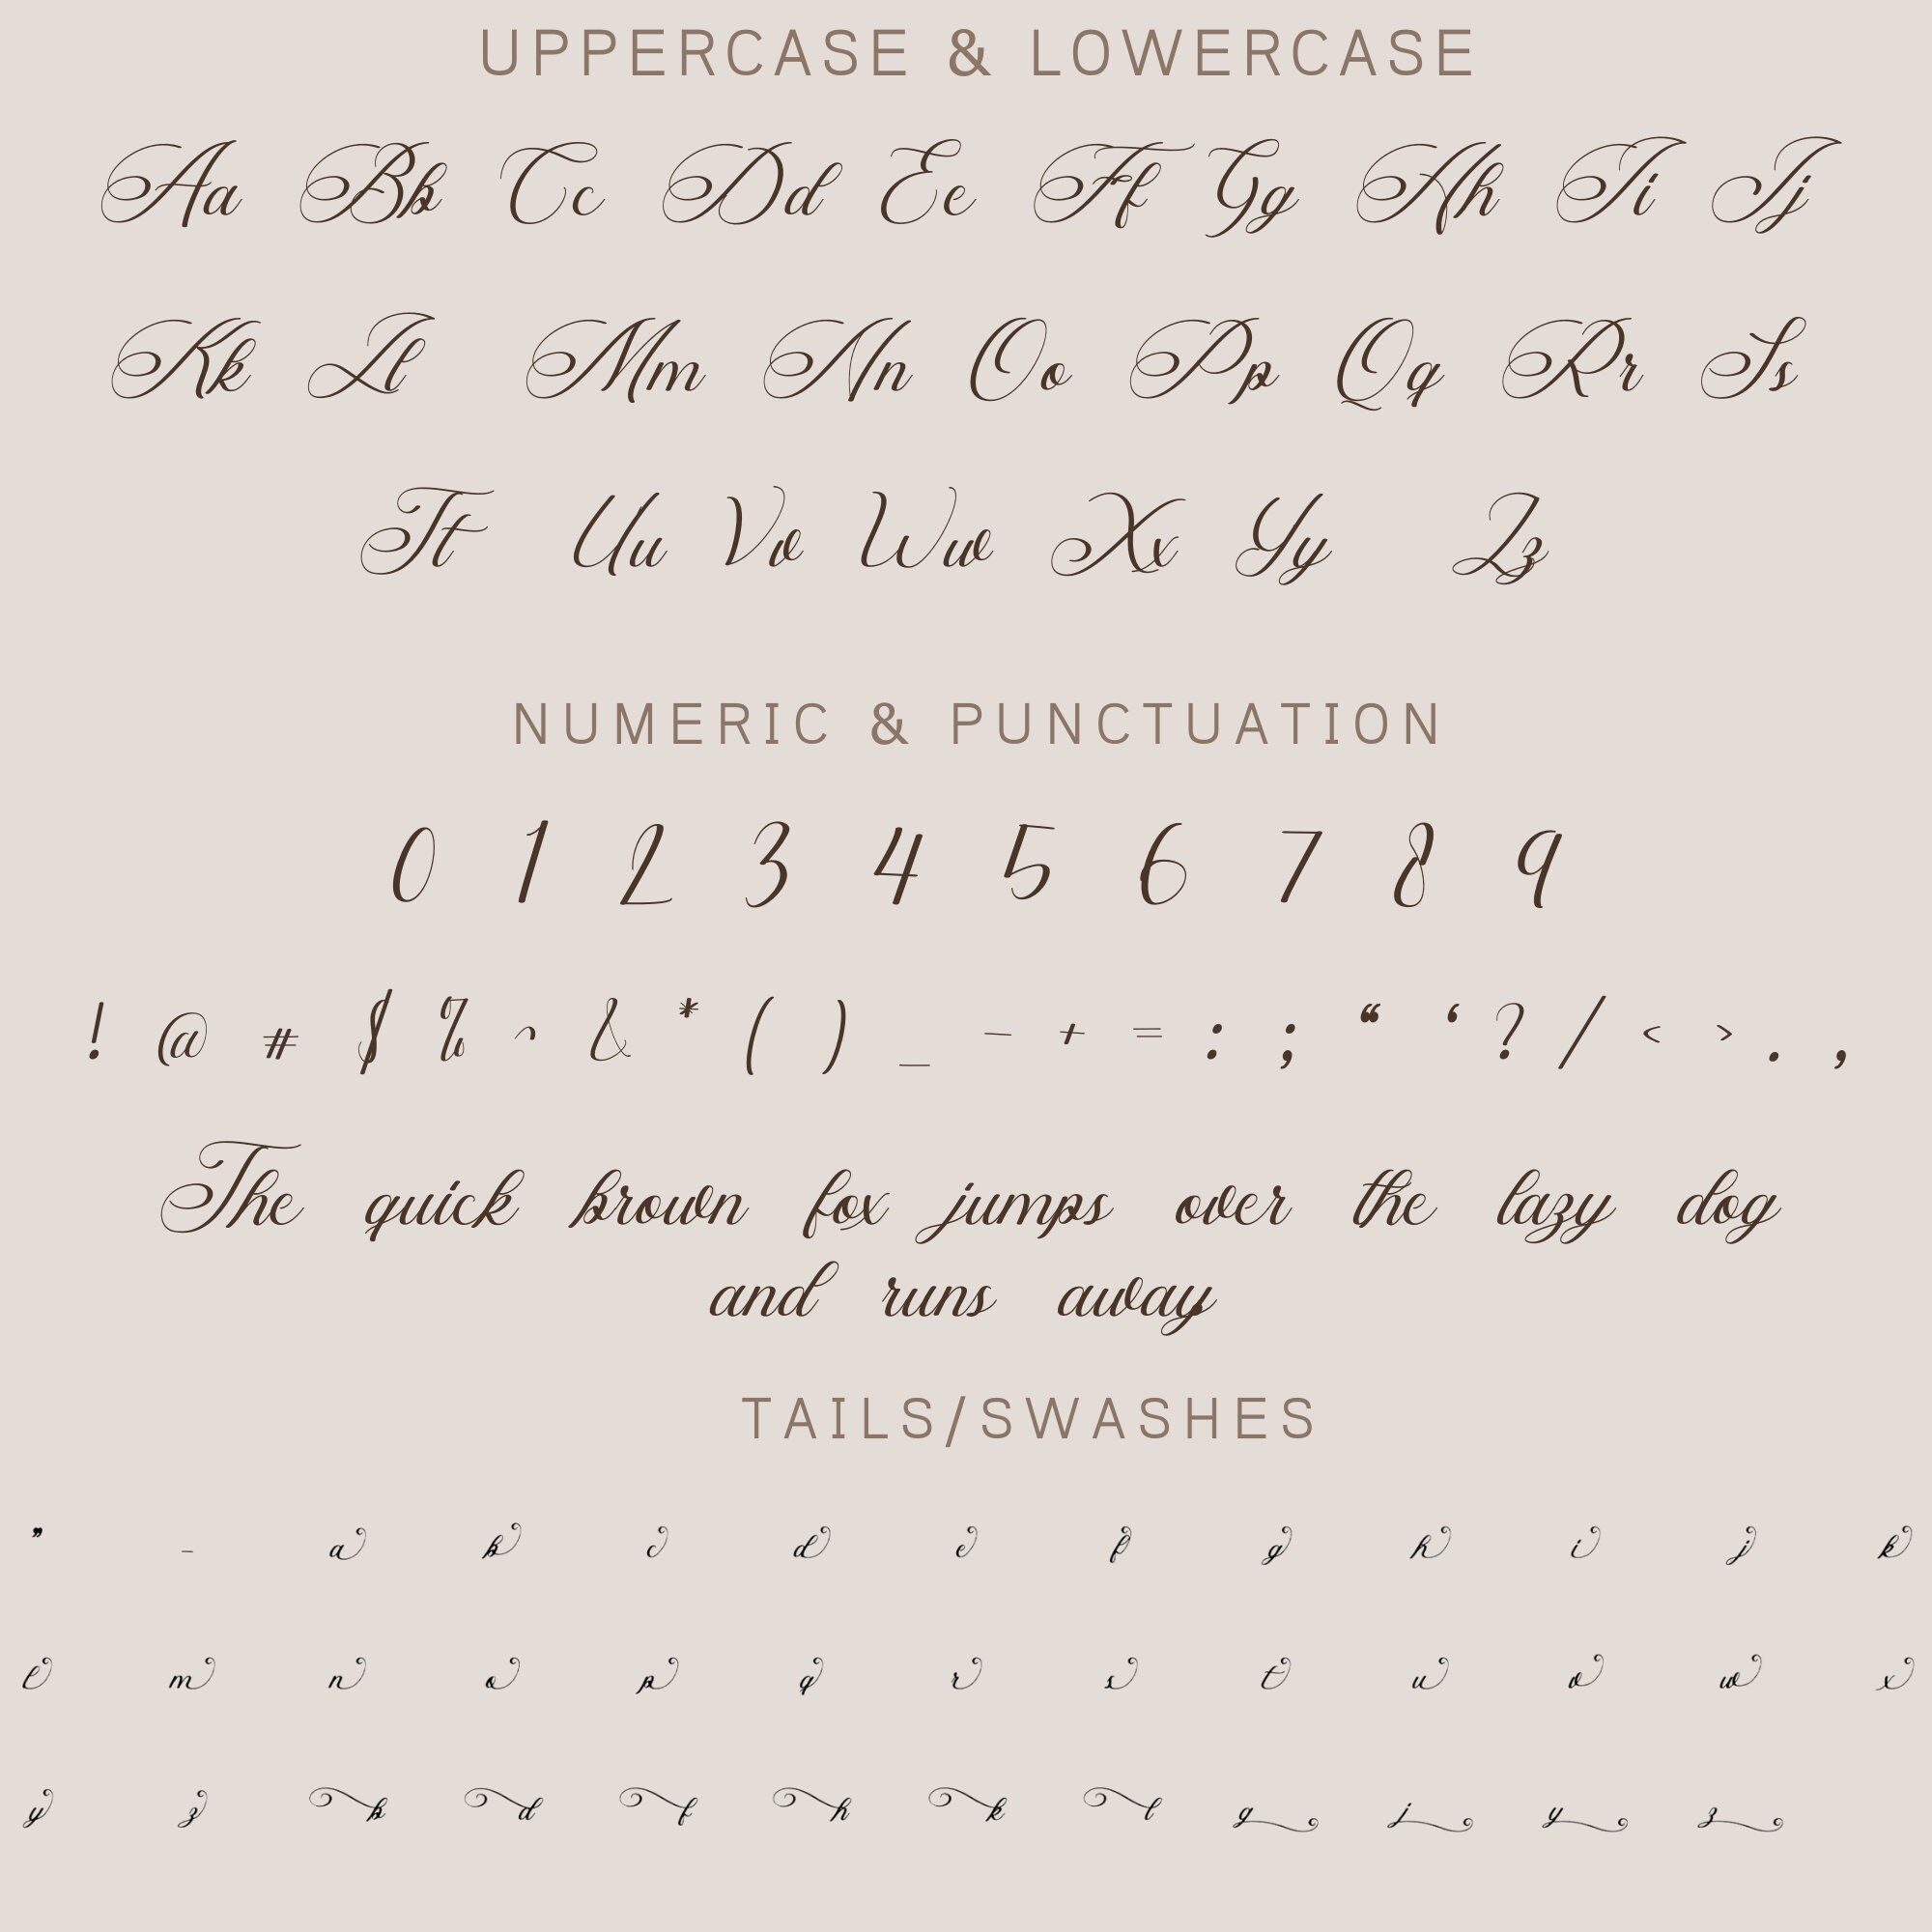 UPPERCASE & LOWERCASE
Aa Bb Cc Dd Ee Ff Gg Hh Ii Jj
Kk Ll Mm Nn Oo Pp Qq Rr Ss
Tt Uu Vv Ww Xx Yy Zz
NUMERIC & PUNCTUATION
0 1 2 3 4 5 6 7 8 9
! @ # $ % ^ & * ( ) _ - + = : ; “ ‘ ? / < > . ,
The quick brown fox jumps over the lazy dog
and runs away
TAILS/SWASHES
” - a b c d e f g h i j k
l m n o p q r s t u v w x
y z b d f h k l g j y z